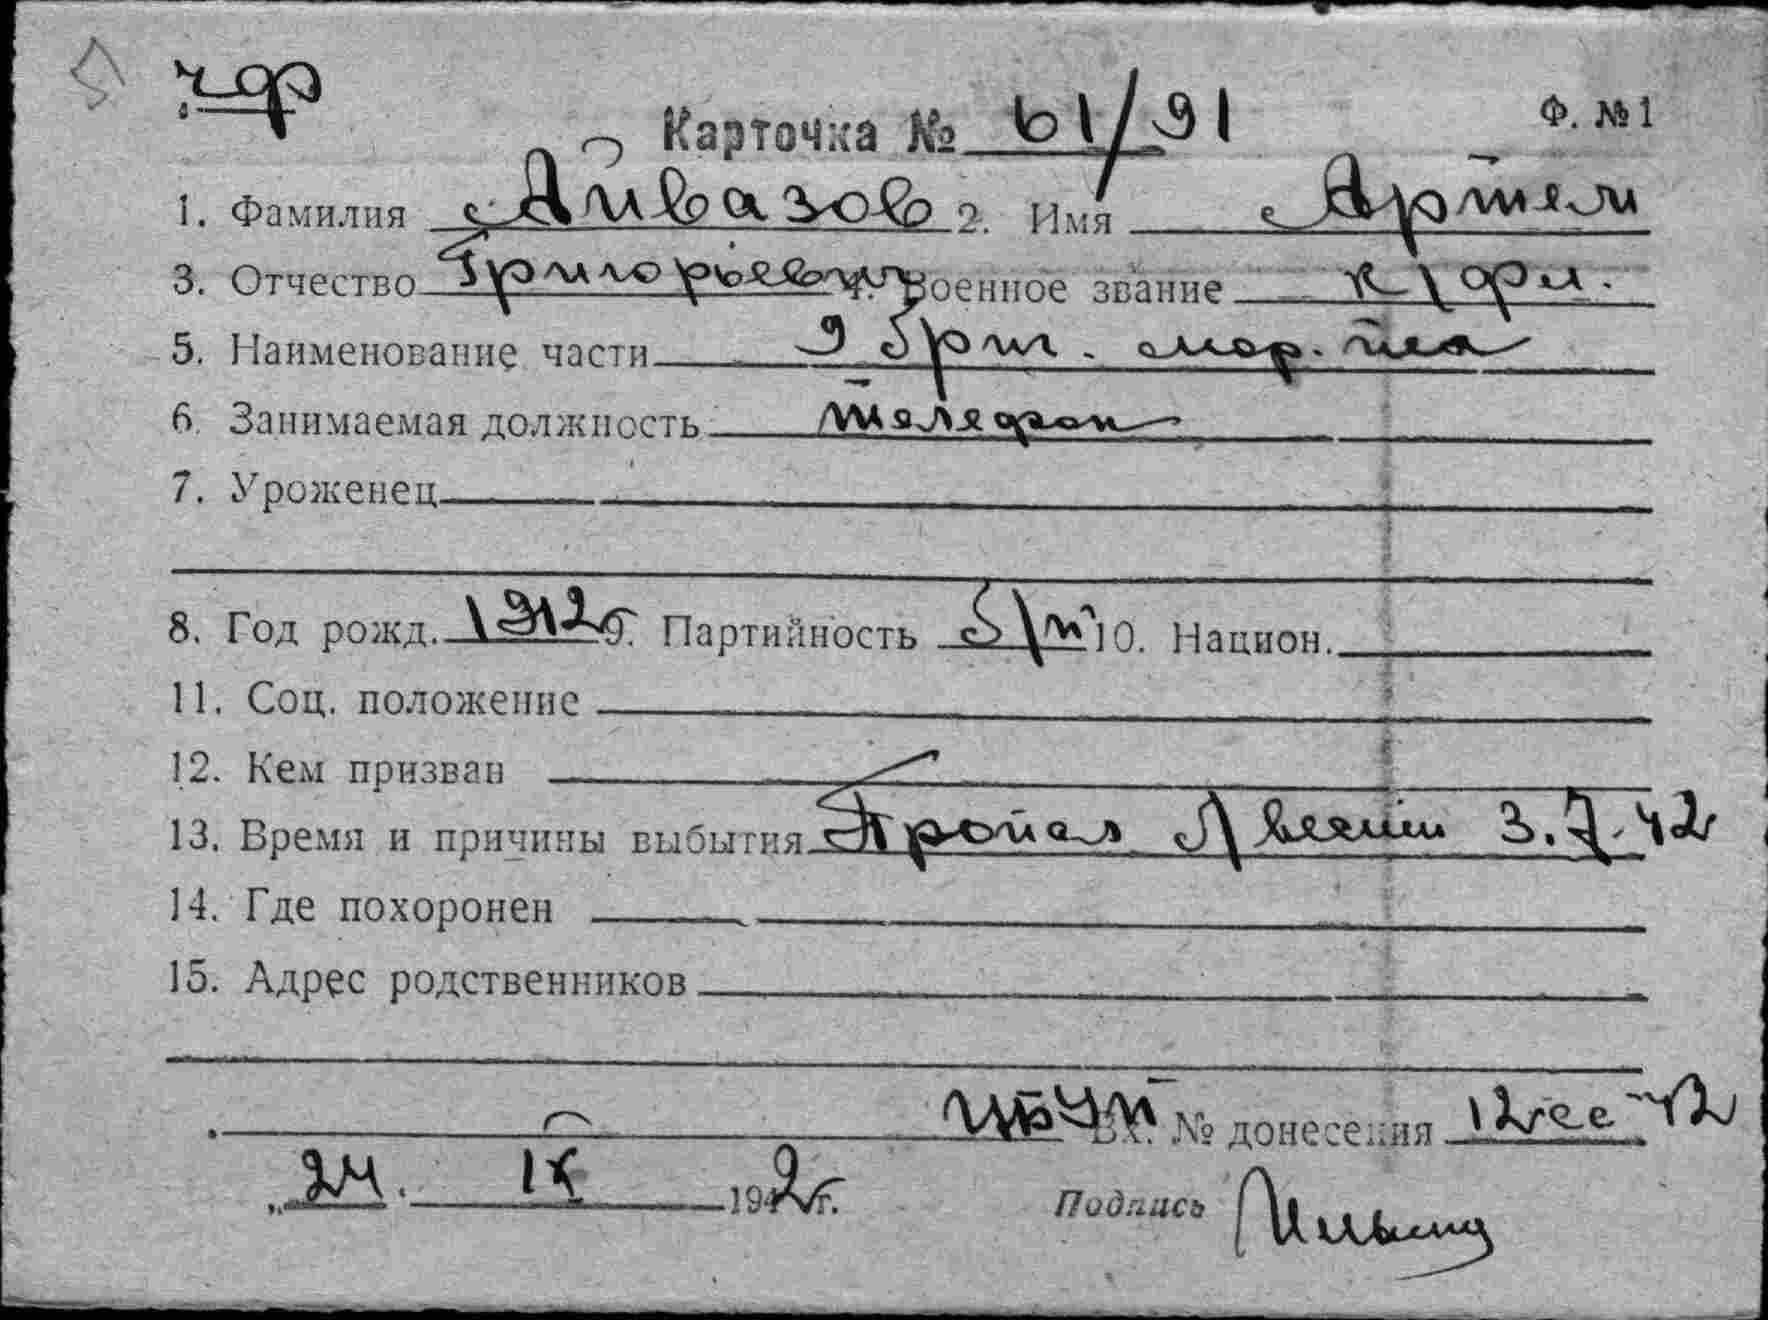 чф
Карточка № 61/91 Ф. №1
1. Фамилия Айвазов 2. Имя Артем
3. Отчество Григорьевич 4. Военное звание к/фл.
5. Наименование части 9 бриг. мор. пех
6. Занимаемая должность телефон
7. Уроженец
8. Год рожд. 1912 9. Партийность б/п 10. Национ.
11. Соц. положение
12. Кем призван
13. Время и причины выбытия Пропал б/вести 3.7.42
14. Где похоронен
15. Адрес родственников
Вх. № донесения
„24. IX 1942г. Подпись